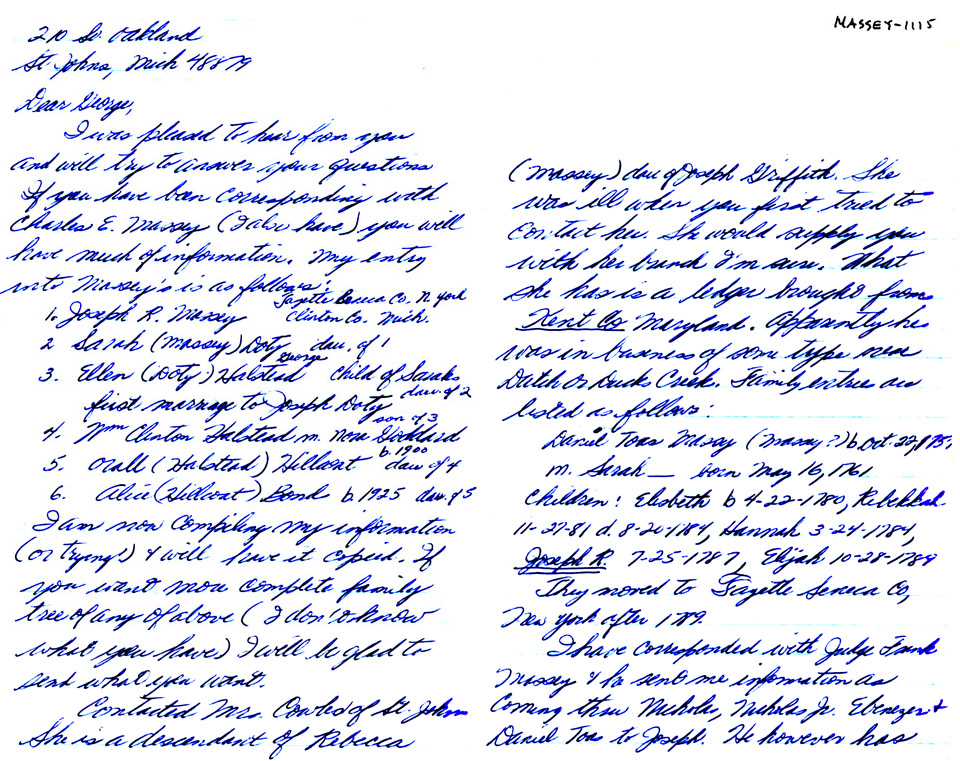 MASSEY-1115
210 So. Oakland
St. Johns, Mich 48879
Dear George,
I was pleased to hear from you
and will try to answer your questions
If you have been corresponding with
Charles E. Massey (I also have) you will
have much of information. My entry
into Massey's is as follows:
1. Joseph R. Massey Fayette Seneca Co. N. York
Clinton Co. Mich.
2 Sarah (Massey) Doty dau. of 1
3. Ellen (Doty) Halstead child of Sarahs
first marriage to George Joseph Doty dau of 2
4. Wm Clinton Halstead m. Nora Goddard son of 3
5. Orall (Halstead) Hellwart b. 1900 dau of 4
6. Alice (Hellwart) Bond b. 1925 dau of 5
I am now compiling my information
(or trying!) & will have it copied. If
you want more complete family
tree of any of above (I don't know
what you have) I will be glad to
send what you want.
Contacted Mrs. Cowles of St. Johns
She is a descendant of Rebecca
(Massey) dau of Joseph Griffith. She
was ill when you first tried to
contact her. She would supply you
with her branch I'm sure. What
she has is a ledger brought from
Kent Co Maryland. Apparently he
was in business of some type near
Dutch or Ducks Creek. Family entries are
listed as follows:
Daniel Toas Massey (Massy?) b. Oct. 22, 175
m. Sarah — born May 16, 1761
Children: Elisbeth b 4-22-1780, Rebekkah
11-27-81 d. 8-20 1784, Hannah 3-24-1784,
Joseph R. 7-25-1787, Elijah 10-28-1789
They moved to Fayette Seneca Co,
New York after 1789.
I have corresponded with Judge Frank
Massey & he sent me infomation as
coming thru Nicholas, Nicholas Jr. Ebenezer +
Daniel Toas to Joseph. He however has